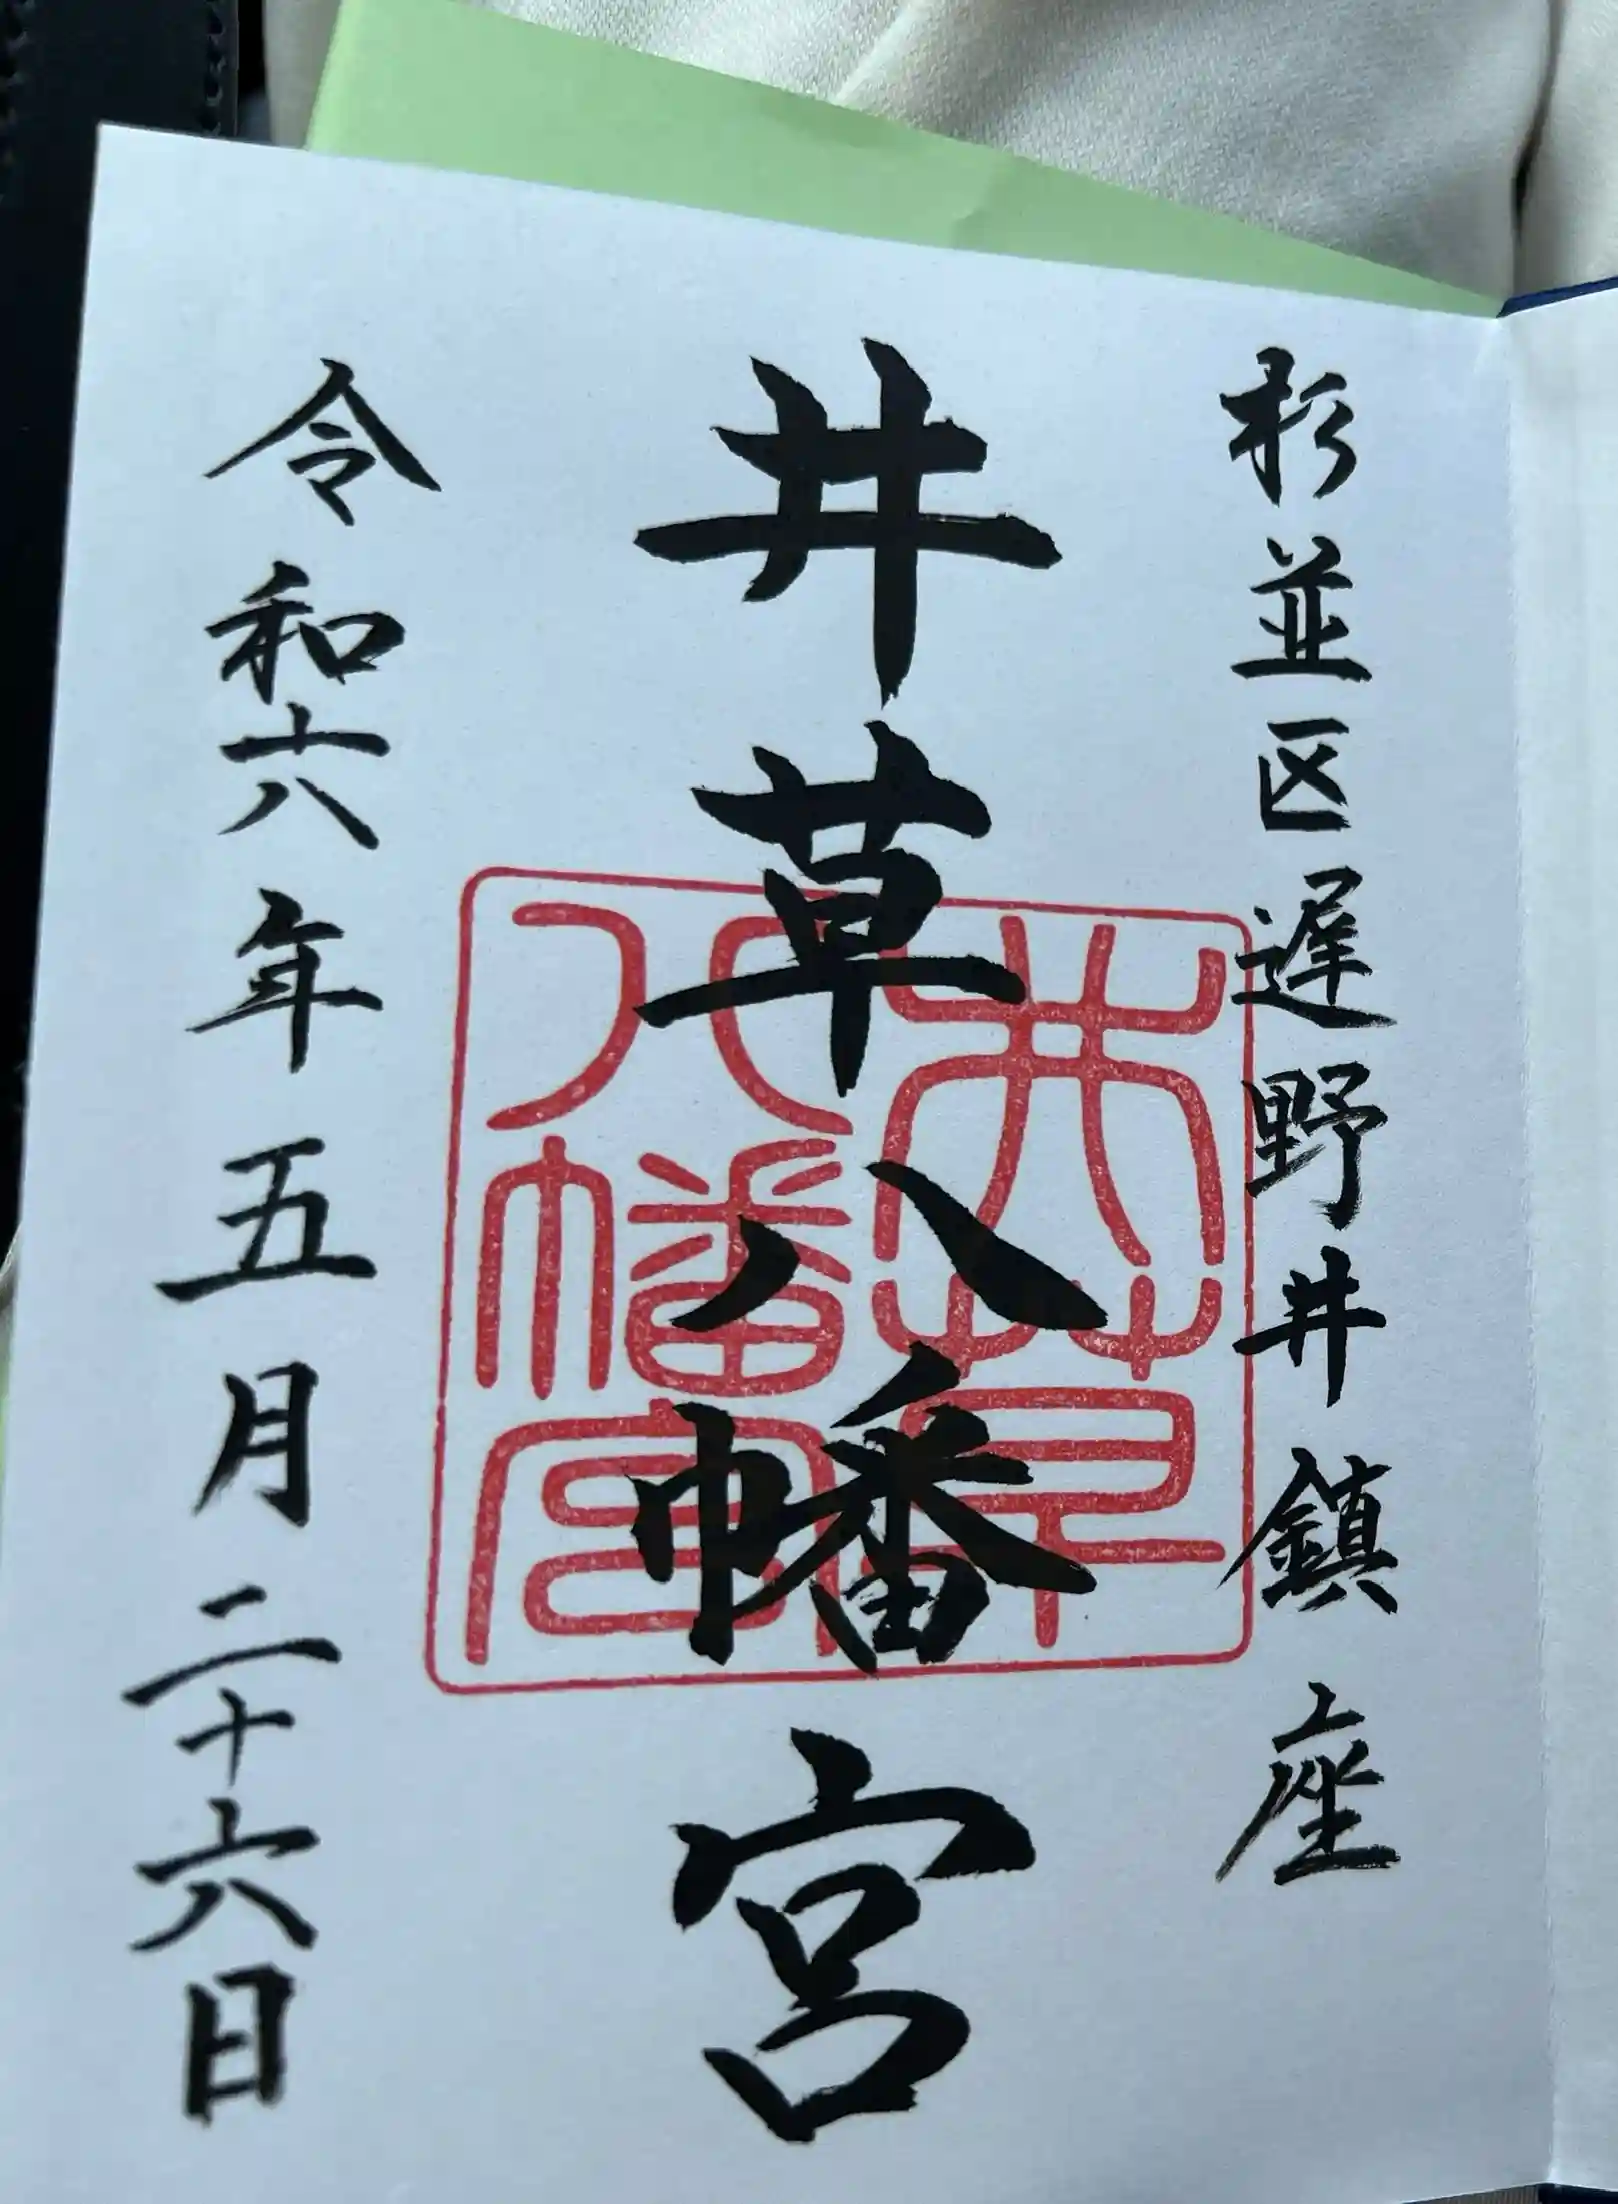 杉並区遅野井鎮座
井草八幡宮
井草
八幡宮
令和六年五月二十六日